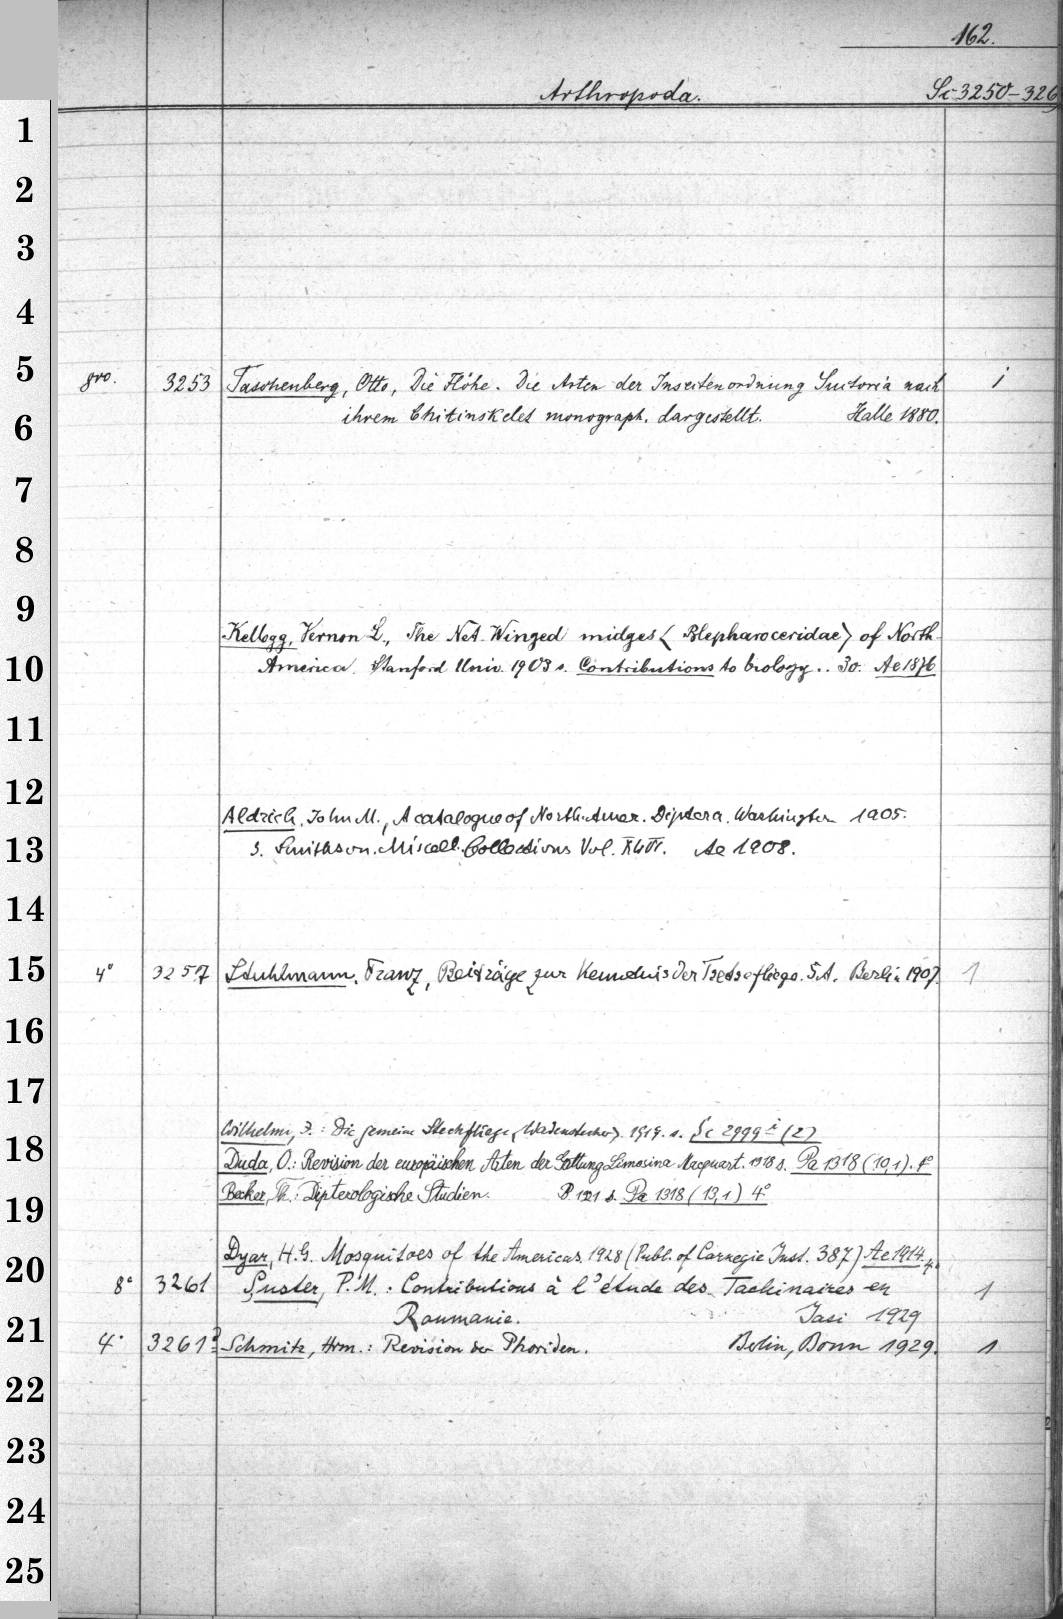 162.
Arthropoda. Sc 3250-326
1
2
3
4
5
gro. 3253 Taschenberg, Otto, Die Flöhe. Die Arten der Insectenordnung Suctoria nach 1
6
ihrem Chitinskelet monograph. dargestellt. Halle 1880.
7
8
9
Kellogg, Vernon L., The Net-Winged midges < Blepharoceridae > of North
10
America. Stanford Univ. 1903 s. Contributions to biology .. 30. Ae 1876
11
12
Aldrich, John M., A catalogue of North-Amer. Diptera. Washington 1905.
13
s. Smithson. Miscell. Collections Vol. XLVI. Ae 1908.
14
15
4° 3257 Stuhlmann, Franz, Beiträge zur Kenntnis der Tsetsefliege. S.A. Berlin 1907. 1
16
17
Wilhelmi, J.: Die gemeine Stechfliege <Wadenstecher>. 1919. s. Sc 2999 i (2)
18
Duda, O.: Revision der europäischen Arten der Gattung Limosina Macquart. 1918 s. Pa 1318 (10,1). 4°
19
Becker, Th.: Dipterologische Studien. s. Pa 1318 (13,1) 4°
Dyar, H.G. Mosquitoes of the Americas. 1928 (Publ. of Carnegie Inst. 387) Ae 1914 4°
20
8° 3261 Şuster, P.M.: Contributions à l'étude des Tachinaires en 1
21
Roumanie. Jasi 1929
4° 3261 Schmitz, Hrm.: Revision der Phoriden. Berlin, Bonn 1929. 1
22
23
24
25